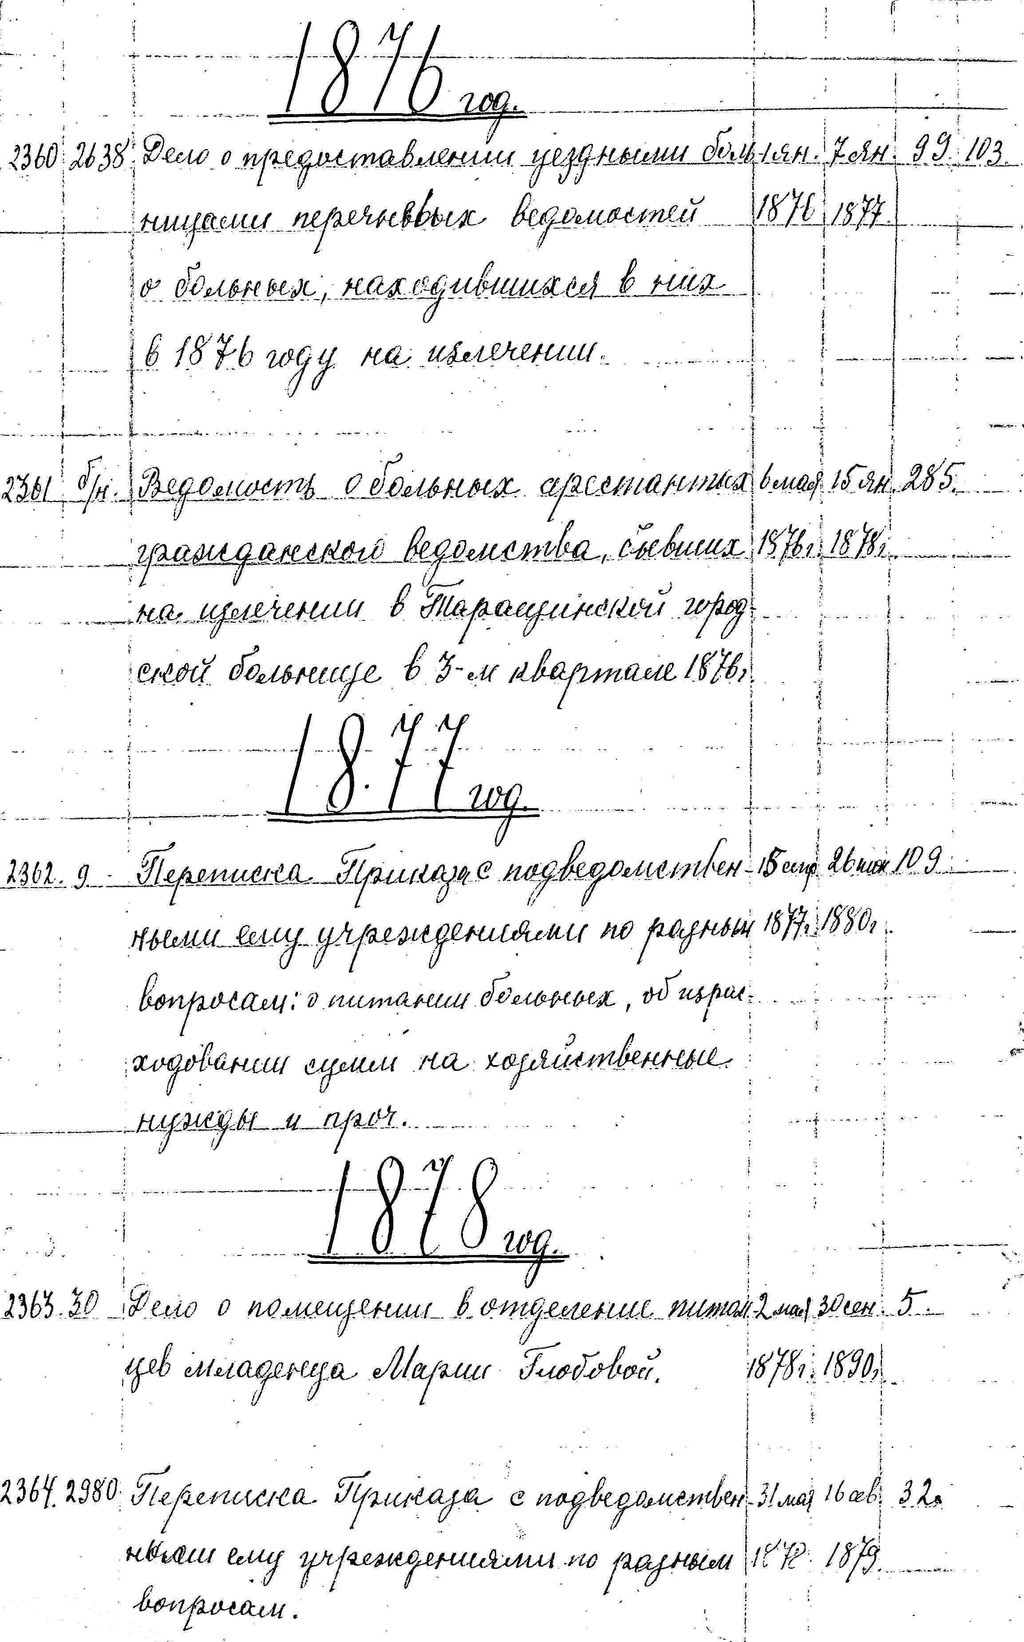 1876 год.
2360 2638 Дело о предоставлении уездными боль 1 ян. 7 ян. 99 103.
ницами перечневых ведомостей 1876 1877
о больных, находившихся в них
в 1876 году на излечении.
2361 б/н. Ведомость о больных арестантах 6 мая 15 ян. 285.
гражданского ведомства, бывших 1876г. 1878г.
на излечении в Таращинской город-
ской больнице в 3-м квартале 1876г.
1877 год.
2362. 9 Переписка Приказа с подведомствен- 26 109.
ными ему учреждениями по разным 1877г. 1880г.
вопросам: о питании больных, об израс-
ходовании сумм на хозяйственные
нужды и проч.
1878 год.
2363. 30 Дело о помещении в отделение питом 2 мая 30 сен. 5.
цев младенца Марии Глобовой. 1878г. 1890г.
2364. 2980. Переписка Приказа с подведомствен- 31 мая 16 32.
ными ему учреждениями по разным 1878 1879.
вопросам.